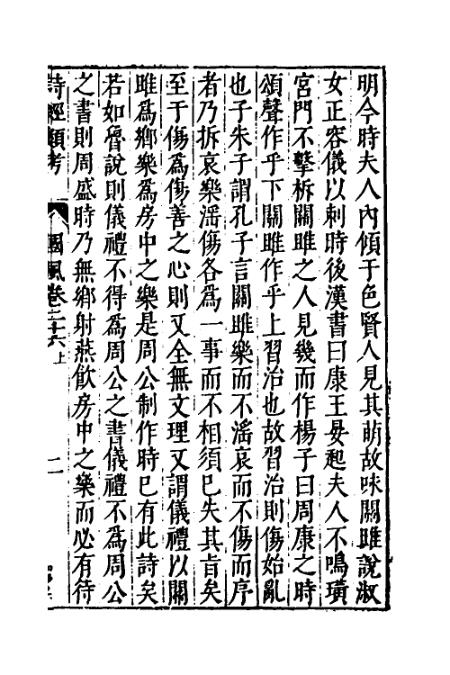 明今時夫人內傾于色賢人見其萌故咏關雎說淑
女正容儀以刺時後漢書曰康王晏起夫人不鳴璜
宮門不擊柝關雎之人見幾而作楊子曰周康之時
頌聲作乎下關雎作乎上習治也故習治則傷始亂
也子朱子謂孔子言關雎樂而不滛哀而不傷而序
者乃拆哀樂滛傷各為一事而不相須已失其旨矣
至于傷為傷善之心則又全無文理又謂儀禮以關
雎為鄉樂為房中之樂是周公制作時已有此詩矣
若如魯說則儀禮不得為周公之書儀禮不為周公
之書則周盛時乃無鄉射燕飲房中之樂而必有待
詩經類考 國風卷之十六上 二